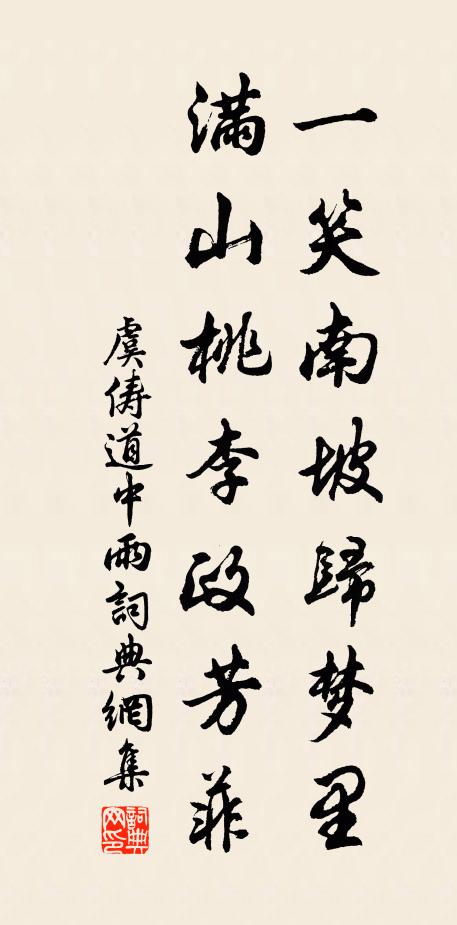 一笑南坡歸梦里
满山桃李政芳菲
虞俦道中雨詞典網集
詞典网印